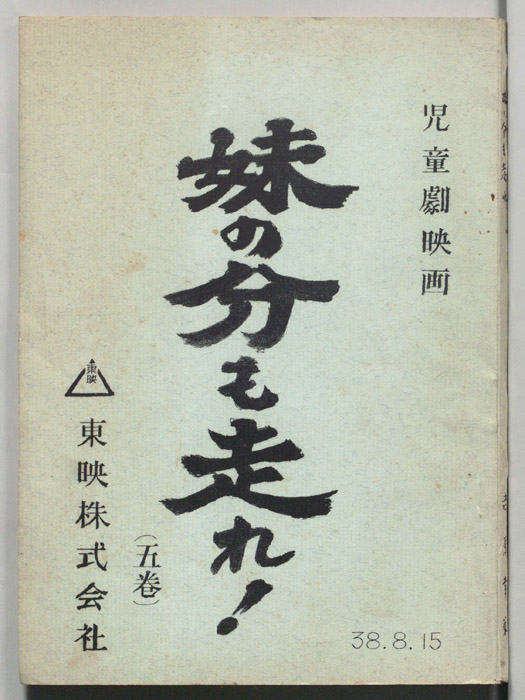 児童劇映画
妹の分も走れ!
(五巻)
東映
東映株式会社
38.8.15